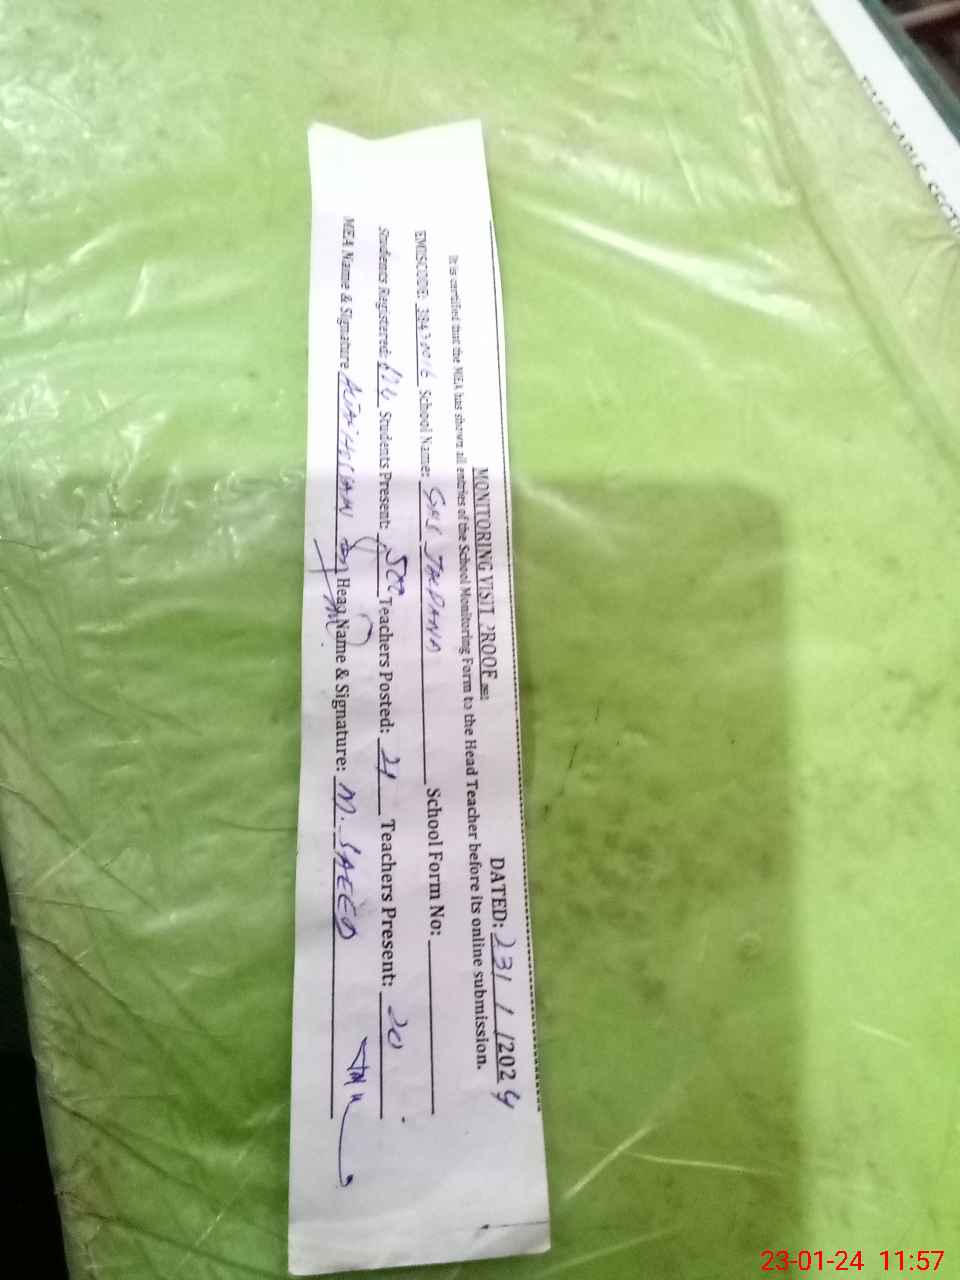 MONITORING VISIT PROOF DATED: 23/1/2024
It is certified that the MEA has shown all entries of the School Monitoring Form to the Head Teacher before its online submission.
EMISCODE: School Name: GHS School Form No:
Students Registered: Students Present: 500 Teachers Posted: 21 Teachers Present: 20
MEA Name & Signature Head Name & Signature: M. SAEED
23-01-24 11:57